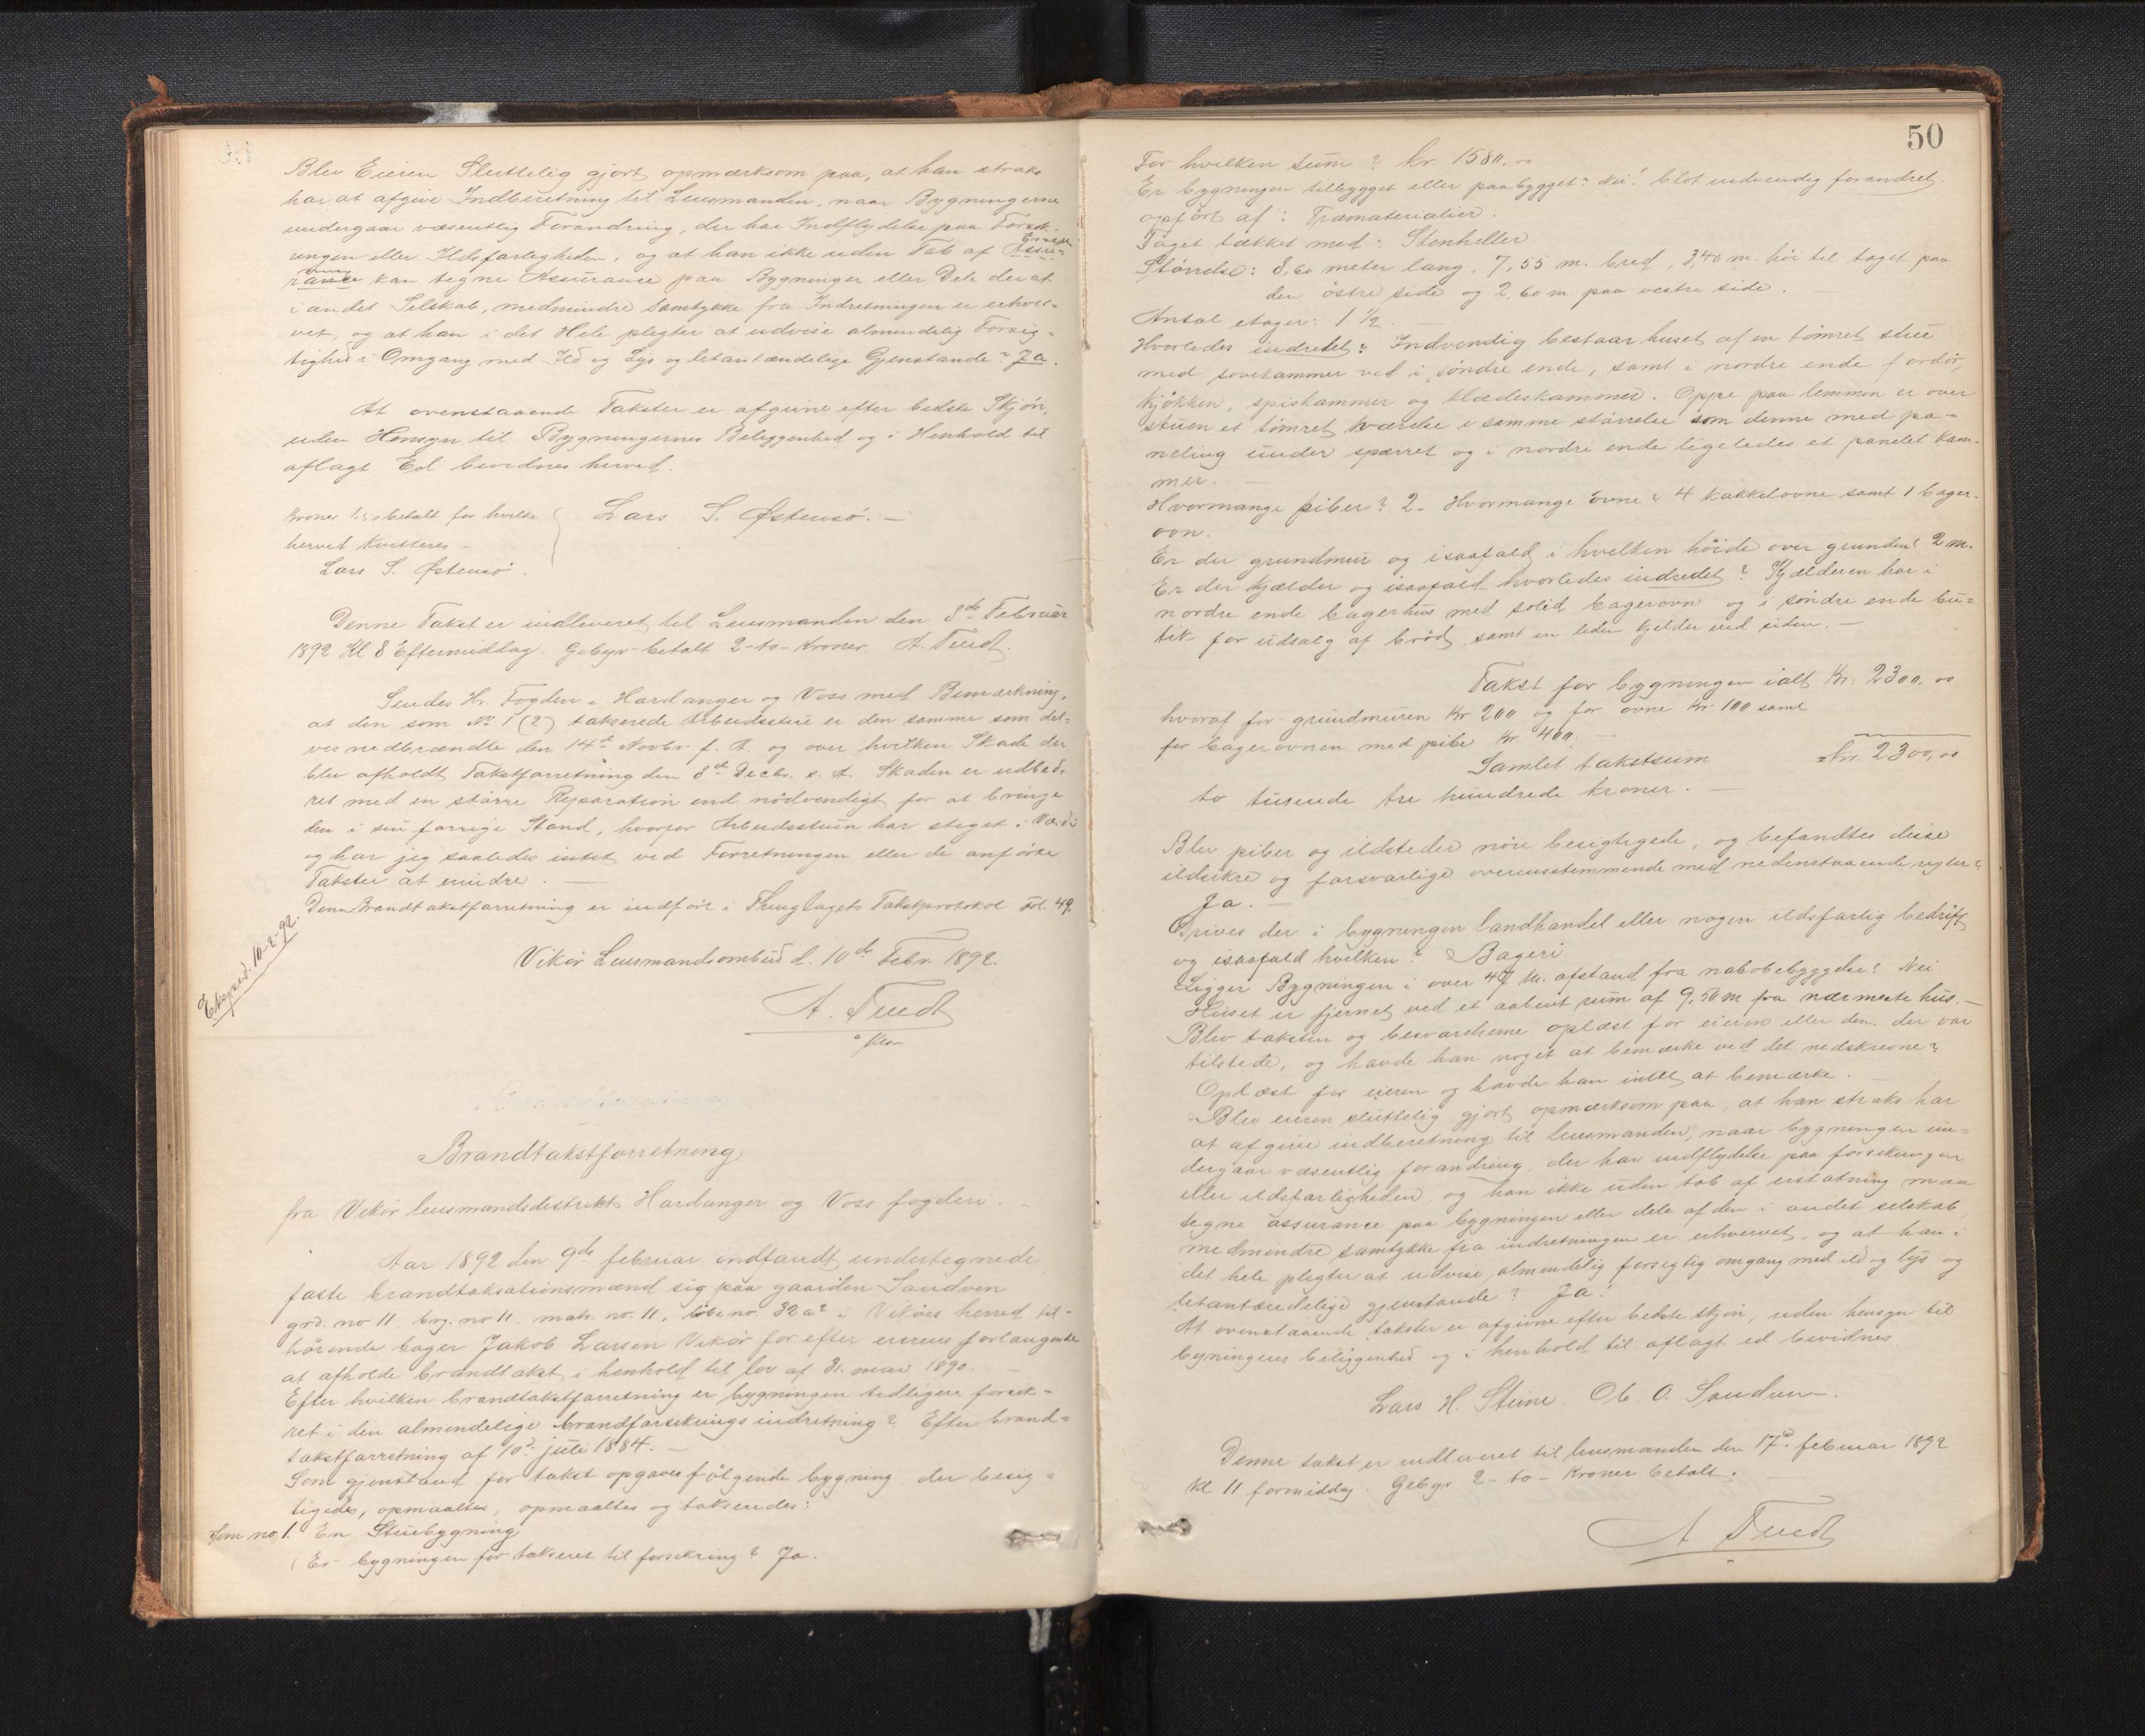 Blev Eieren Sluttelig gjort opmærksom paa, at han straks
har at afgive Indberetning til Lensmanden, naar Bygningerne
undergaar væsentlig Forandring, der har Indflydelse paa Forsik-
ringen eller Ildsfarligheden, og at han ikke uden Tab af Assu-
rance kan tegne Assurance paa Bygninger eller Dele deraf
i andet Selskab, medmindre Samtykke fra Indretningen er erhver-
vet, og at han i det Hele pligter at udvise almindelig Forsig-
tighed i Omgang med Ild og Lys og letantændelige Gjenstande? Ja.
At ovenstaaende Takster er afgivne efter bedste Skjøn,
uden Hensyn til Bygningernes Beliggenhed og i Henhold til
aflagt Ed bevidnes herved.
Kroner betalt for hvilke
herved kvitteres –
Lars S. Østensø.
Lars S. Østensø. –
Denne Takst er indleveret til Lensmanden den 8de Februar
1892 Kl 8 Eftermiddag. Gebyr betalt 2-to-Kroner. A. Tvedt.
Sendes Hr. Fogden i Hardanger og Voss med Bemærkning,
at den som No 1 (2) takserede Arbeidsstue er den samme som del-
vis nedbrændte den 14de Novbr. f. A. og over hvilken Skade der
blev afholdt Takstforretning den 8de Decbr. s. A. Skaden er udbed-
ret med en större Reparation end nödvendigt for at bringe
den i sin forrige Stand, hvorfor Arbeidsstuen har steget i Værdi
og har jeg saaledes intet ved Forretningen eller de anförte
Takster at erindre. –
Denne Brandtakstforretning er indfört i Thinglagets Takstprotokol Fol. 49.
Eksped. 10-2-92.
Vikör Lensmandsombud d. 10de Febr. 1892.
A. Tvedt
Brandtakstforretning
fra Vikör lensmandsdistrikt Hardanger og Voss fogderi.
Aar 1892 den 9de februar indfandt undertegnede
faste brandtaksationsmænd sig paa gaarden Sandven
grd. no 11. brg. no 11. matr. no. 11, löbe no. 32 a2 i Vikörs herred til-
hörende bager Jakob Larsen Vikör for efter eierens forlangende
at afholde brandtakst i henhold til lov af 31. mai 1890. –
Efter hvilken brandtakstforretning er bygningen tidligere forsik-
ret i den almindelige brandforsikringsindretning? Efter brand-
takstforretning af 10de juli 1884. –
Som gjenstand for takst opgaves fölgende bygning der besig-
tigedes, opmaaltes, opmaaltes og takseredes:
Som no 1. En Stuebygning
(Er bygningen för takseret til forsikring? Ja.
50
For hvilken sum? kr. 1580.00
Er bygningen tilbygget eller paabygget? Nei! blot indvendig forandret.
opfört af: Træmaterialier.
Taget tækket med: Stenheller
Störrelse: 8,60 meter lang, 7,55 m. bred, 3,40 m. höi til taget paa
den östre side og 2,60 m paa vestre side.
Antal etager: 1 1/2. –
Hvorledes indredet? Indvendig bestaar huset af en tömret stue
med sovekammer ved i söndre ende, samt i nordre ende fordör,
kjökken, spiskammer og klædeskammer. Oppe paa lemmen er over
stuen et tömret værelse i samme störrelse som denne med pa-
neling under spærret og i nordre ende ligeledes et panelet kam-
mer. –
Hvormange piber? 2 – Hvormange ovne? 4 kakkelovne samt 1 bager-
ovn.
Er der grundmur og isaafald i hvilken höide over grunden? 2 m.
Er der kjælder og isaafald hvorledes indredet? Kjælderen har i
nordre ende bagerhus med solid bagerovn og i söndre ende bu-
tik for udsalg af bröd, samt en liden kjelder ved siden. –
Takst for bygningen ialt Kr. 2300,00
hvoraf for grundmuren Kr 200 og for ovne Kr 100 samt
for bagerovnen med pibe Kr. 400. –
Samlet takstsum Kr. 2300,00
to tusende tre hundrede kroner. –
Blev piber og ildsteder nöie besigtigede, og befandtes disse
ildsikre og forsvarlige overensstemmende med nedenstaaende regler?
Ja. –
Drives der i bygningen landhandel eller nogen ildsfarlig bedrift
og isaafald hvilken? Bageri
Ligger Bygningen i over 47 m. afstand fra nabobebyggelse? Nei
Huset er fjernet ved et aabent rum af 9,50 m fra nærmeste hus. –
Blev taksten og besvarelserne oplæst for eieren eller den, der var
tilstede, og havde han noget at bemærke ved det nedskrevne?
Oplæst for eieren og havde han intet at bemærke. –
Blev eieren sluttelig gjort opmærksom paa, at han straks har
at afgive indberetning til lensmanden, naar bygningen un-
dergaar væsentlig forandring, der har indflydelse paa forsikringen
eller ildsfarligheden, og han ikke uden tab af erstatning maa
tegne assurance paa bygningen eller dele af den i andet selskab,
medmindre samtykke fra indretningen er erhvervet, og at han i
det hele pligter at udvise almindelig forsigtig omgang med ild og lys og
letantændelige gjenstande? Ja!
At ovenstaaende takster er afgivne efter bedste skjön, uden hensyn til
bygningens beliggenhed og i henhold til aflagt ed bevidnes
Lars H. Steine. Ole O. Sandven.
Denne takst er indleveret til lensmanden den 17de februar 1892
kl 11 formiddag. Gebyr 2-to-Kroner betalt.
A Tvedt